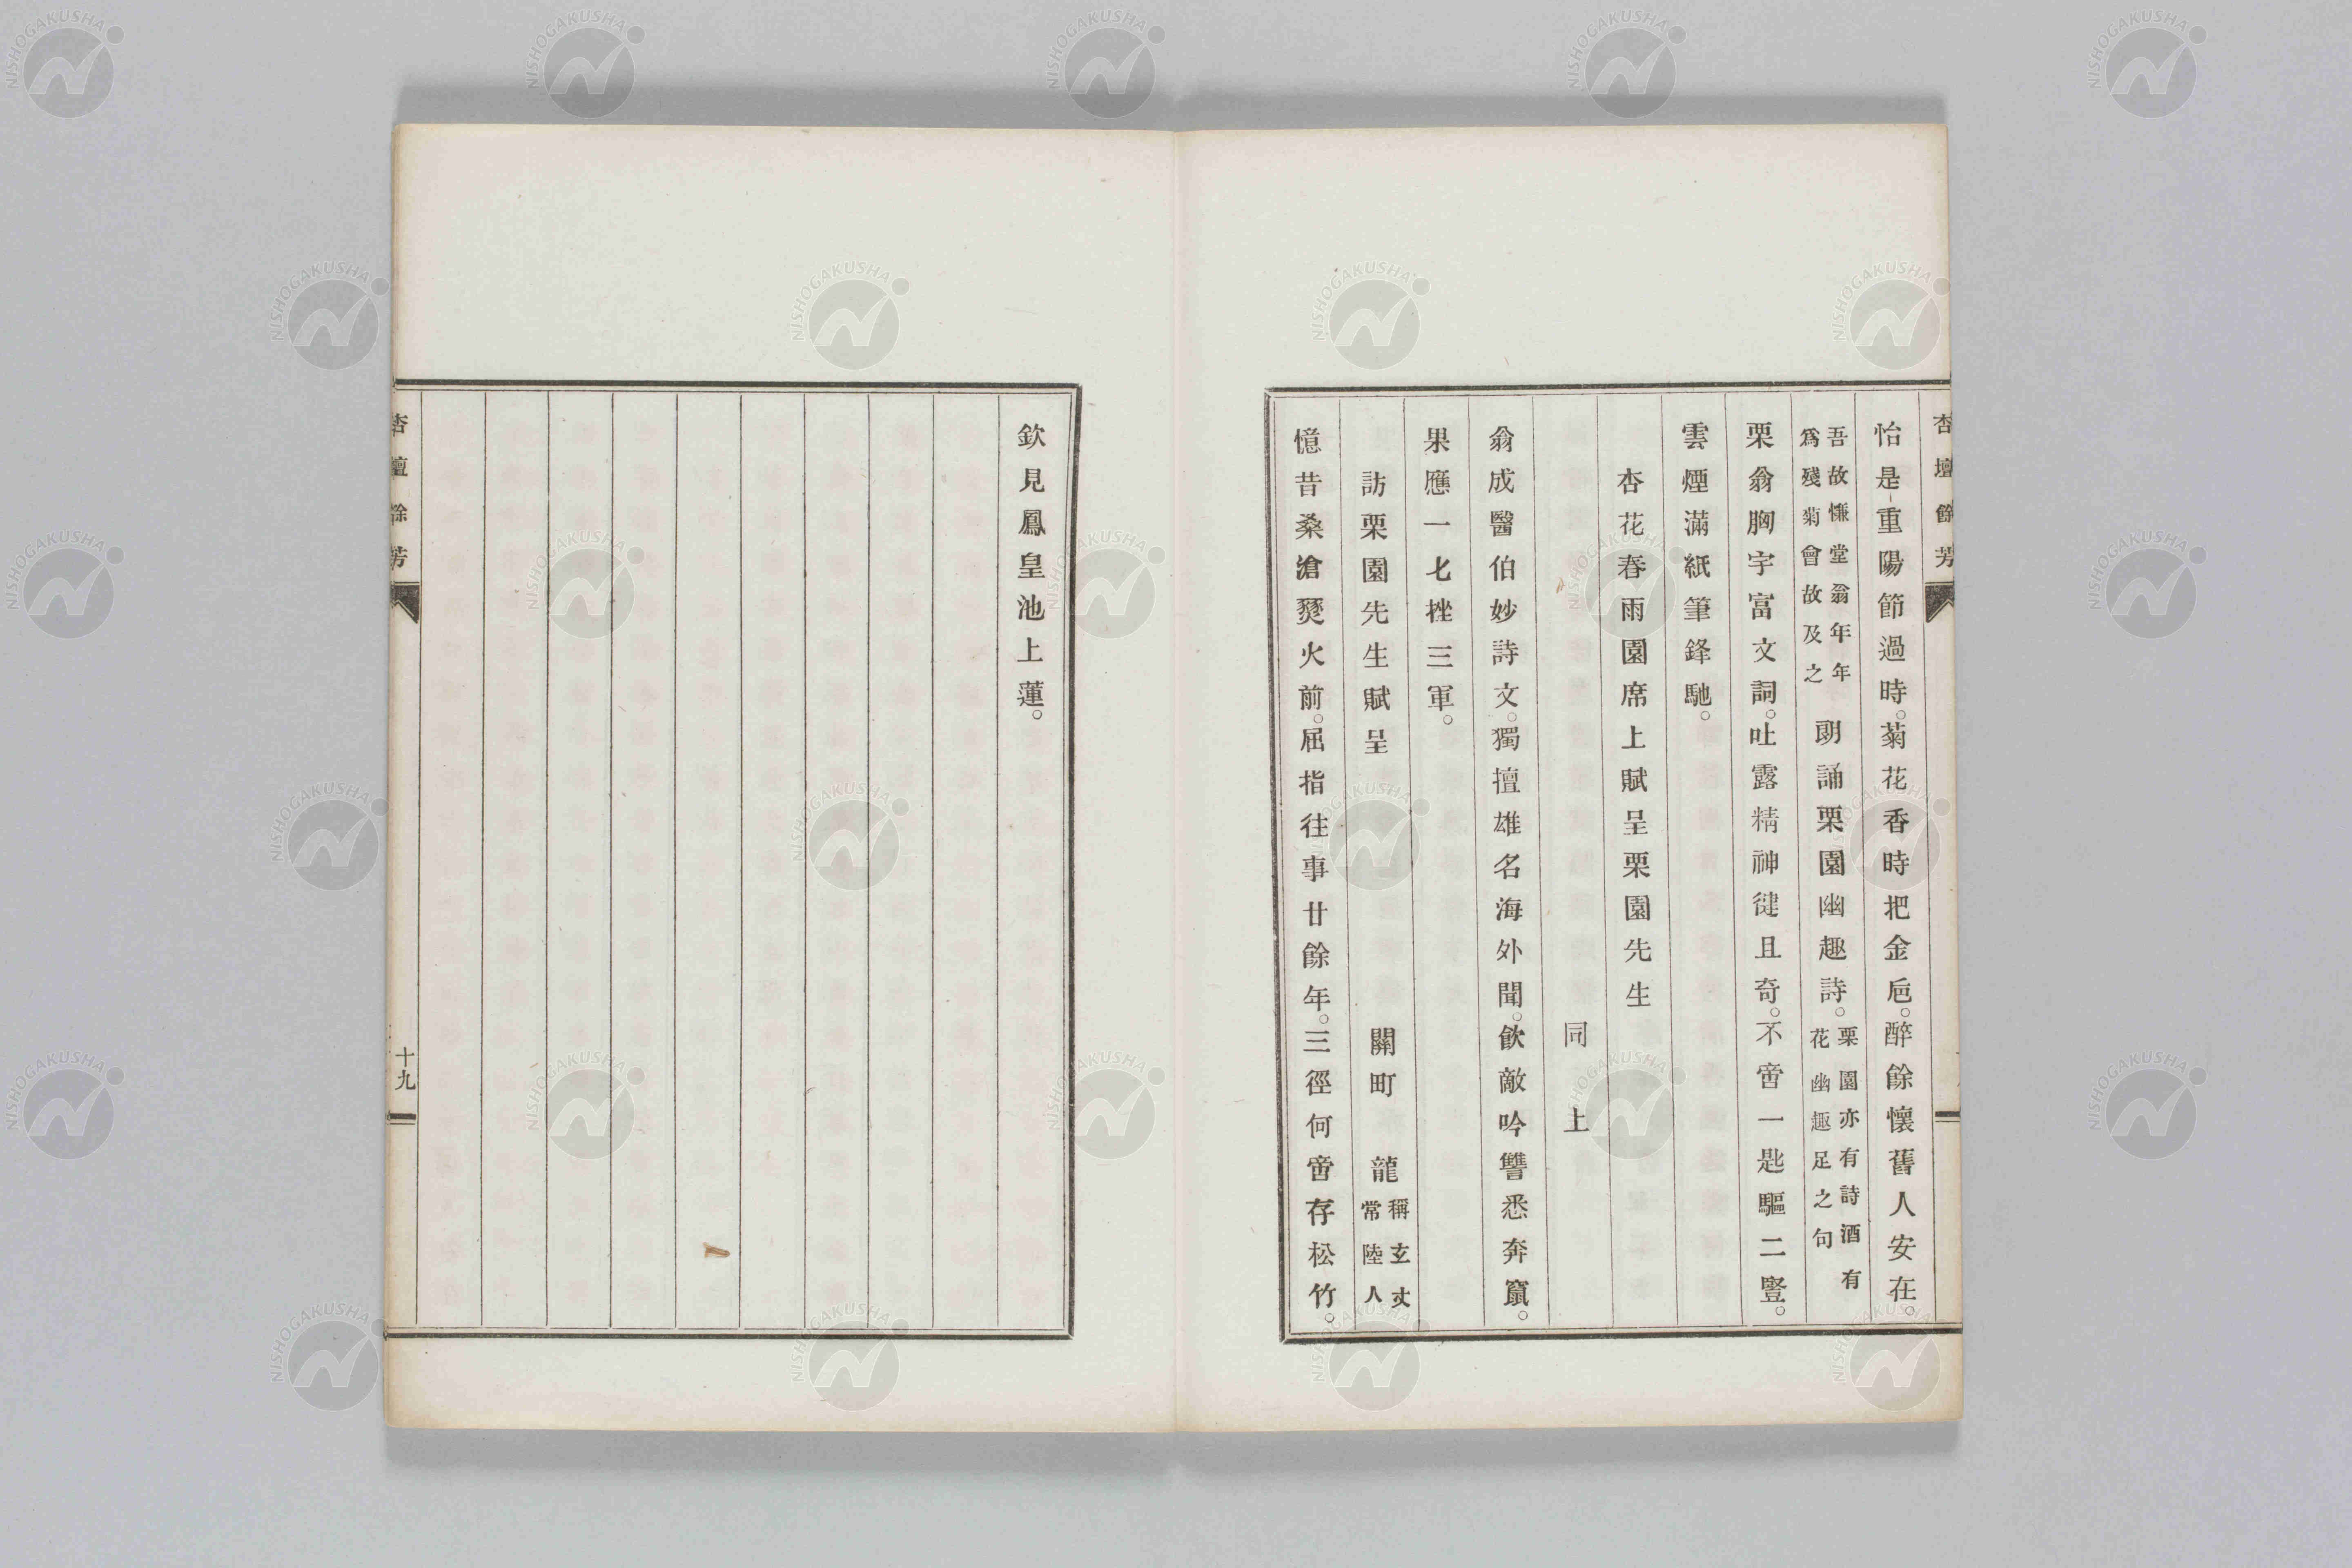 杏壇餘芳
怡是重陽節過時。菊花香時把金巵。醉餘懷舊人安在。
吾故慊堂翁年年
爲殘菊會故及之
朗誦栗園幽趣詩。
栗園亦有詩酒有
花幽趣足之句
栗翁胸宇富文詞。吐露精神健且奇。不啻一匙驅二豎。
雲煙滿紙筆鋒馳。
杏花春雨園席上賦呈栗園先生
同上
翁成醫伯妙詩文。獨擅雄名海外聞。飮敵吟讐悉奔竄。
果應一匕挫三軍。
訪栗園先生賦呈
關町龍
稱玄丈
常陸人
憶昔桑滄燹火前。屈指往事廿餘年。三徑何啻存松竹。
欽見鳳皇池上蓮。
杏壇餘芳
十九
NISHOGAKUSHA